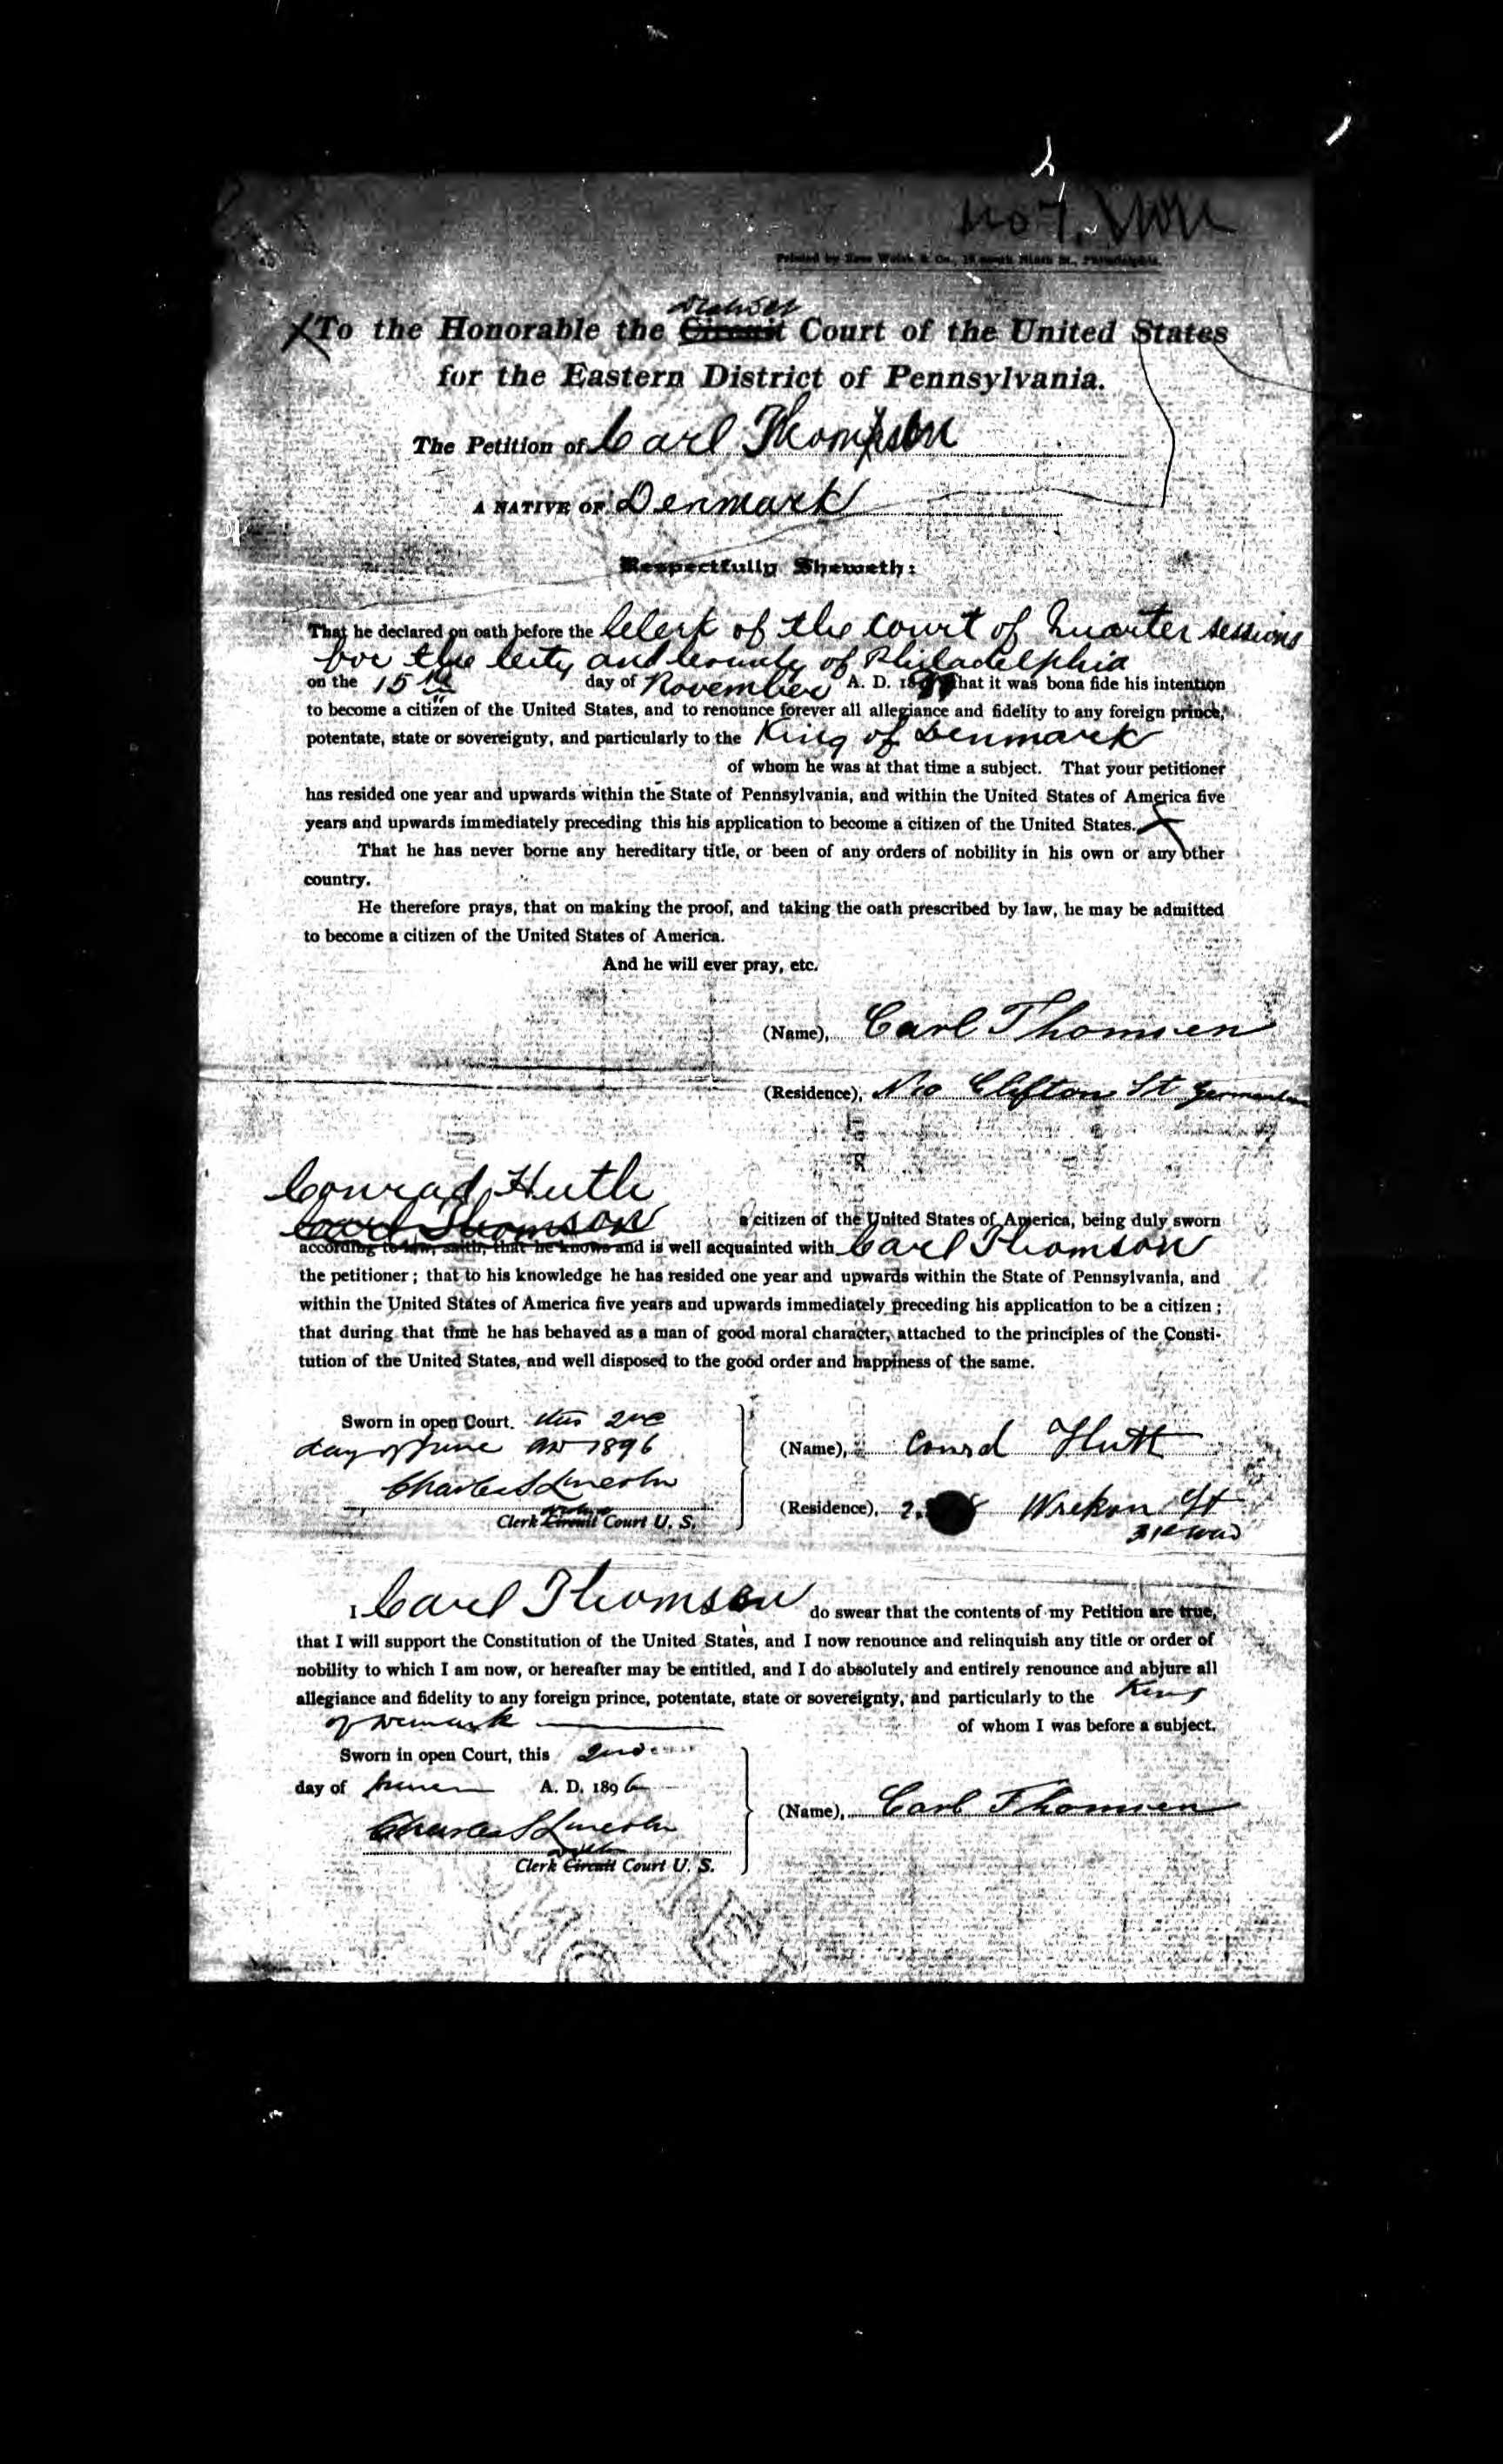 Printed by
To the Honorable the Circuit Court of the United States
for the Eastern District of Pennsylvania.
The Petition of Carl Thomson
A NATIVE OF Denmark
Respectfully Sheweth:
That he declared on oath before the Clerk of the Court of Quarter Sessions
for the City and County of Philadelphia
on the 15th day of November A. D. 18 that it was bona fide his intention
to become a citizen of the United States, and to renounce forever all allegiance and fidelity to any foreign prince,
potentate, state or sovereignty, and particularly to the King of Denmark
of whom he was at that time a subject. That your petitioner
has resided one year and upwards within the State of Pennsylvania, and within the United States of America five
years and upwards immediately preceding this his application to become a citizen of the United States.
That he has never borne any hereditary title, or been of any orders of nobility in his own or any other
country.
He therefore prays, that on making the proof, and taking the oath prescribed by law, he may be admitted
to become a citizen of the United States of America.
And he will ever pray, etc.
(Name), Carl Thomsen
(Residence), No Clifton St Germantown
Conrad Huth
Carl Thomson a citizen of the United States of America, being duly sworn
according to law, saith, that he knows and is well acquainted with Carl Thomson
the petitioner; that to his knowledge he has resided one year and upwards within the State of Pennsylvania, and
within the United States of America five years and upwards immediately preceding his application to be a citizen;
that during that time he has behaved as a man of good moral character, attached to the principles of the Consti-
tution of the United States, and well disposed to the good order and happiness of the same.
Sworn in open Court. this 2nd
day of June AD 1896
Charles S Lincoln
Clerk Circuit Court U. S.
(Name), Conrd Huth
(Residence), St
31st Ward
I Carl Thomsen do swear that the contents of my Petition are true,
that I will support the Constitution of the United States, and I now renounce and relinquish any title or order of
nobility to which I am now, or hereafter may be entitled, and I do absolutely and entirely renounce and abjure all
allegiance and fidelity to any foreign prince, potentate, state or sovereignty, and particularly to the King
of Denmark of whom I was before a subject.
Sworn in open Court, this 2nd
day of June A. D. 1896
Charles S Lincoln
Clerk Circuit Court U. S.
(Name), Carl Thomsen